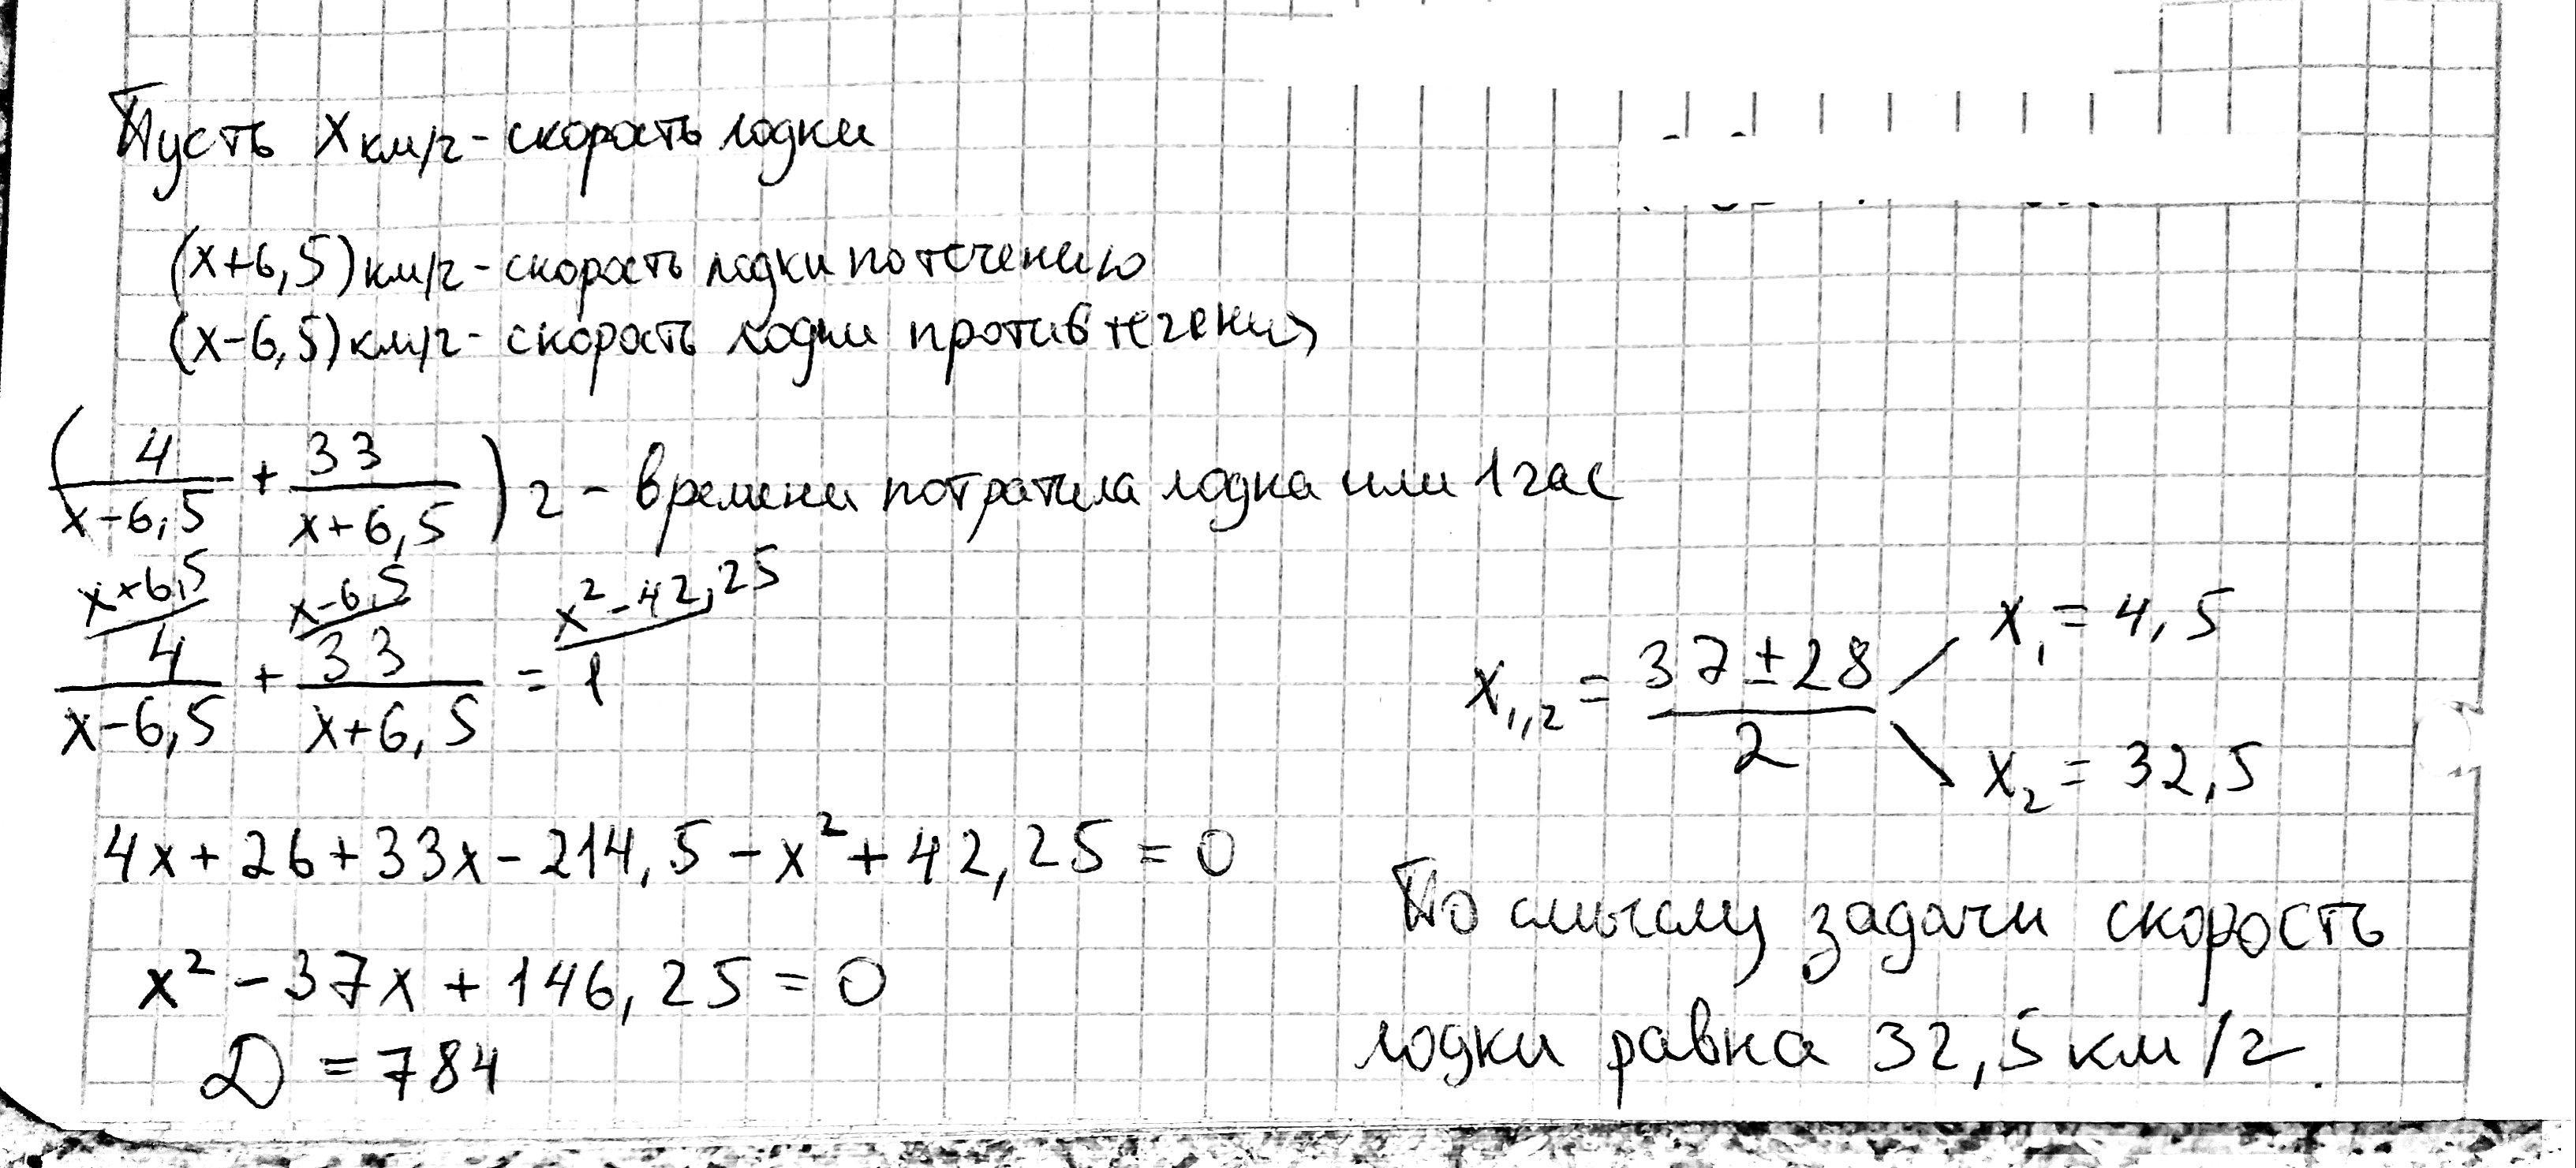 Пусть x км/ч - скорость лодки
(x+6,5) км/ч - скорость лодки по течению
(x-6,5) км/ч - скорость лодки против течения
(4/(x-6,5) + 33/(x+6,5)) ч - времени потратила лодка или 1 час
x+6,5 x-6,5 x²-42,25
4/(x-6,5) + 33/(x+6,5) = 1
4x+26+33x-214,5-x²+42,25=0
x²-37x+146,25=0
D=784
x₁,₂ = (37±28)/2
x₁=4,5
x₂=32,5
По смыслу задачи скорость
лодки равна 32,5 км/ч.